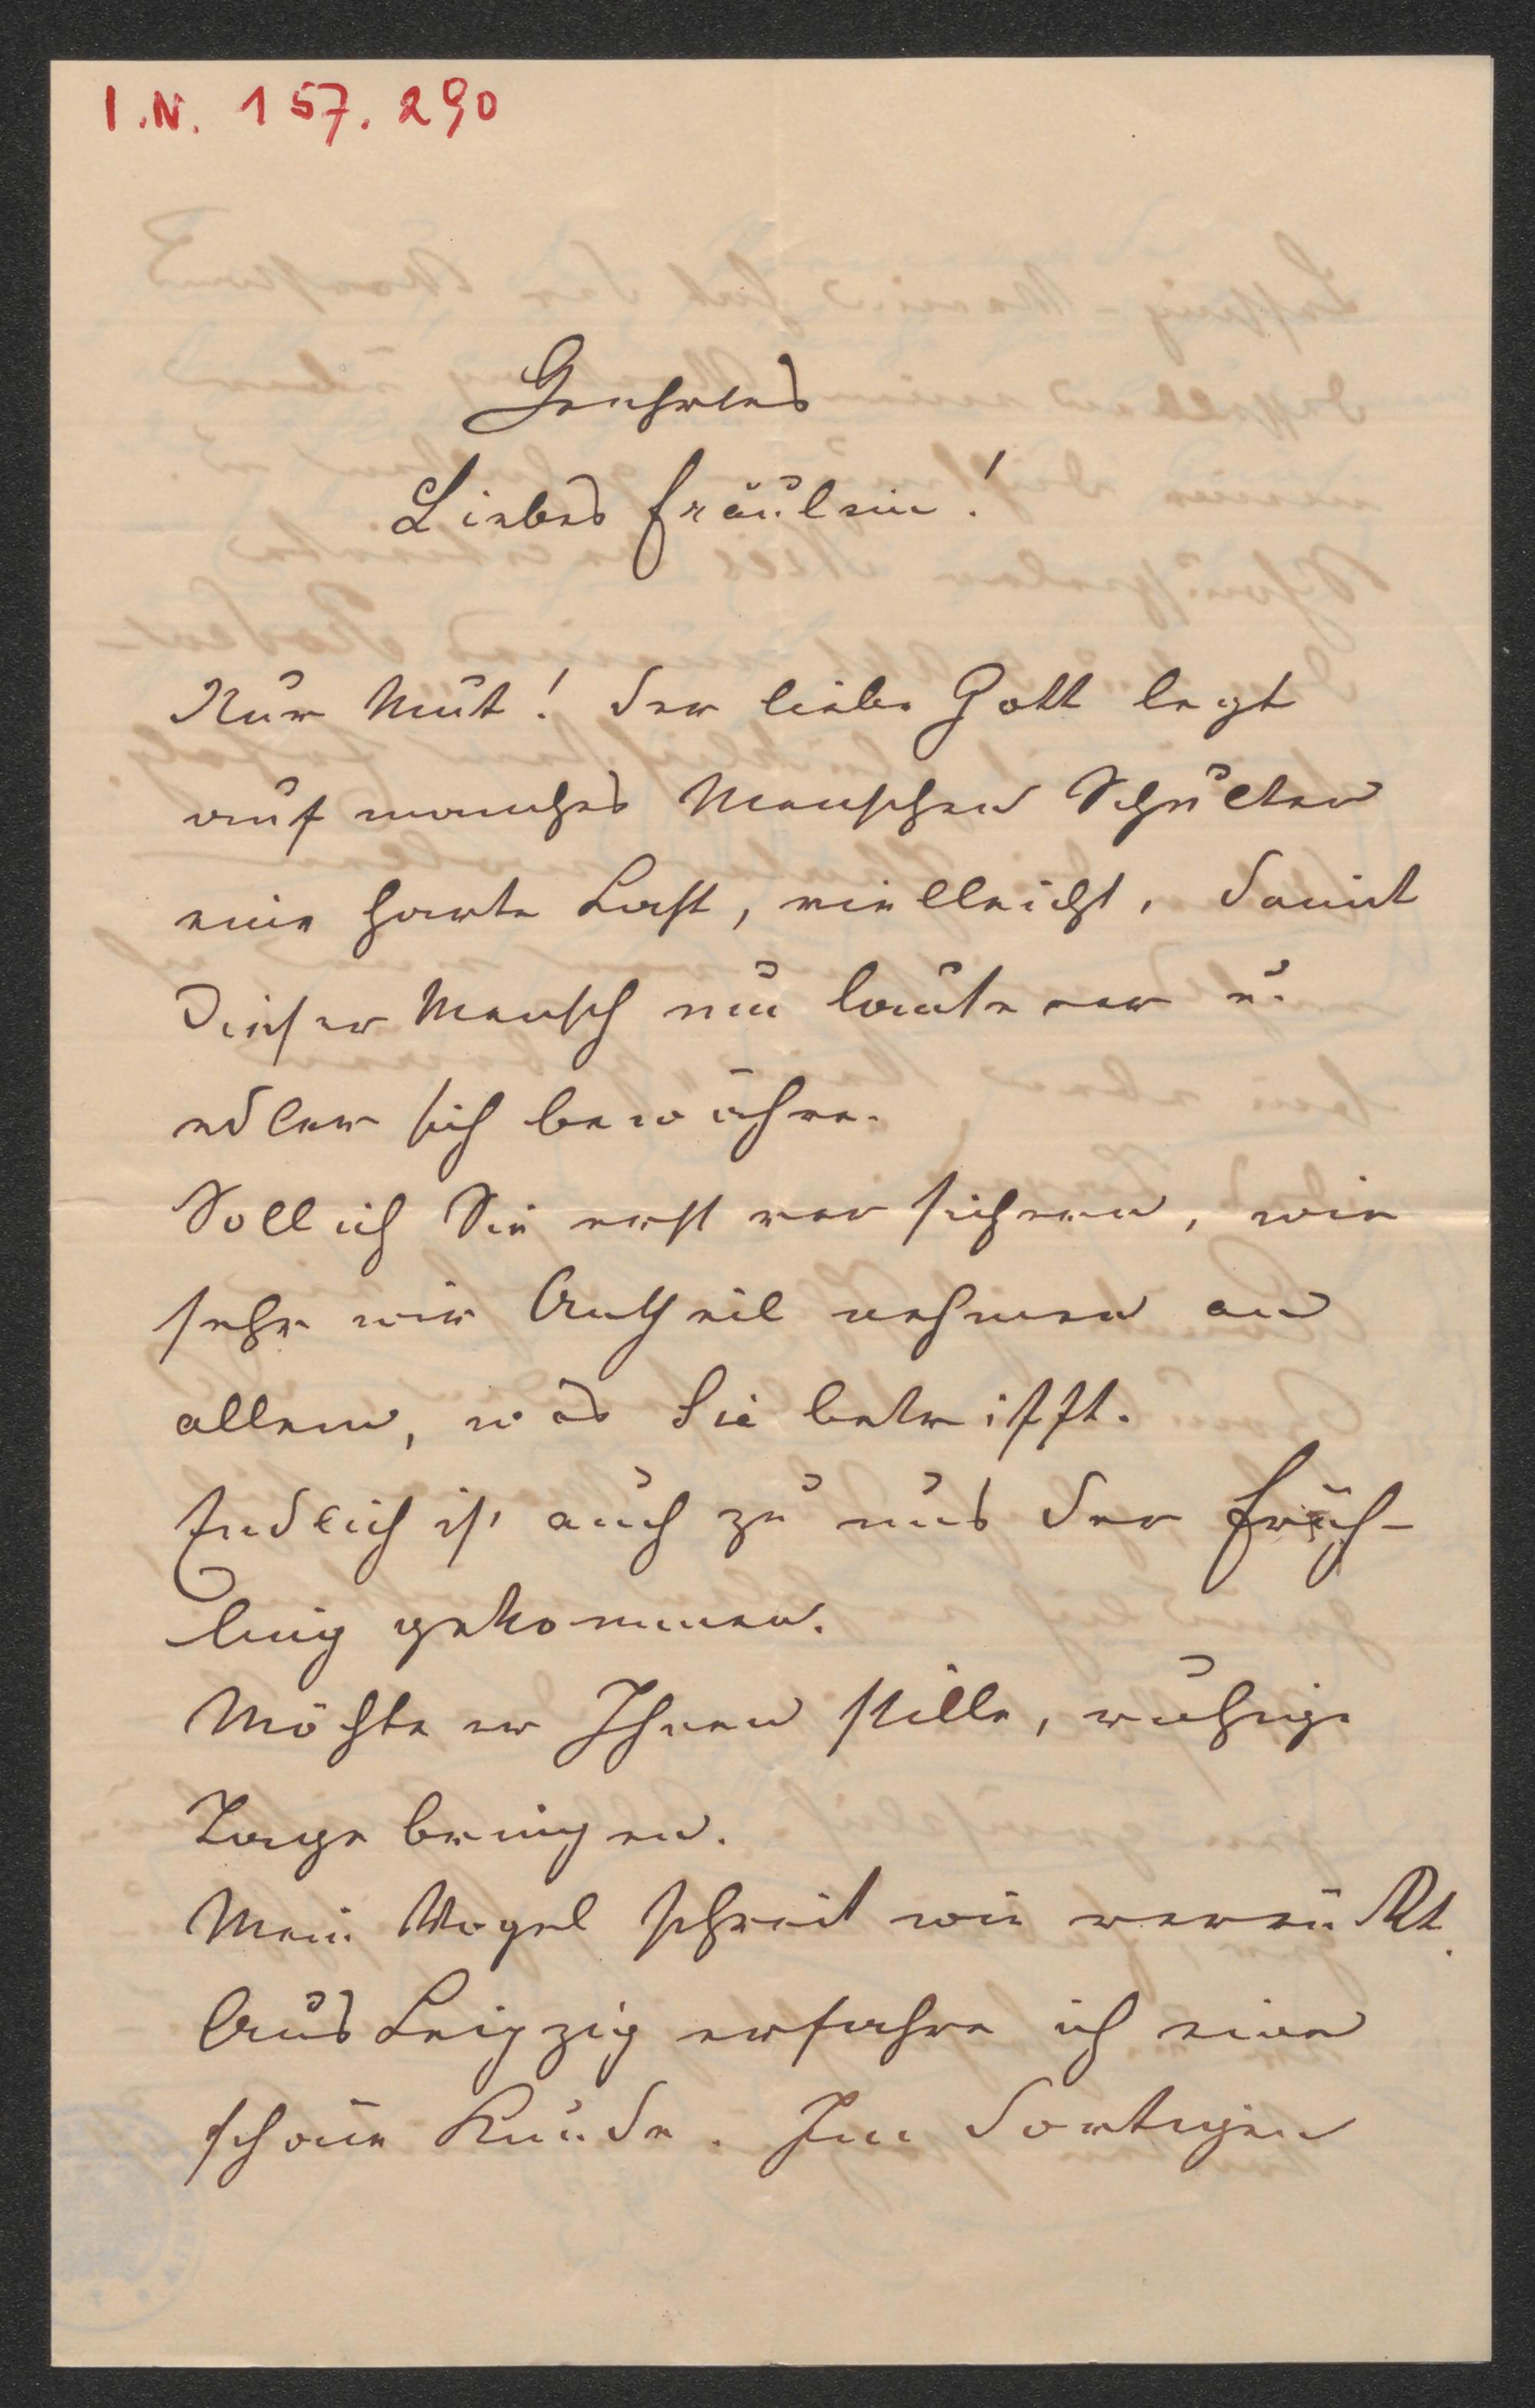 I.N. 157.290
Geehrtes
Liebes Fräulein!
Nur Mut! Der liebe Gott legt
auf manches Menschen Schulter
eine harte Last, vielleicht, damit
dieser Mensch nur lauterer u.
edler sich bewähre.
Soll ich Sie erst versichern, wie
sehr wir Antheil nehmen an
allem, was Sie betrifft.
Endlich ist auch zu uns der Früh-
ling gekommen.
Möchte er Ihnen stille, ruhige
Tage bringen.
Mein Vogel schreit wie verrückt.
Aus Leipzig erfahre ich eine
schöne Kunde. Im dortigen